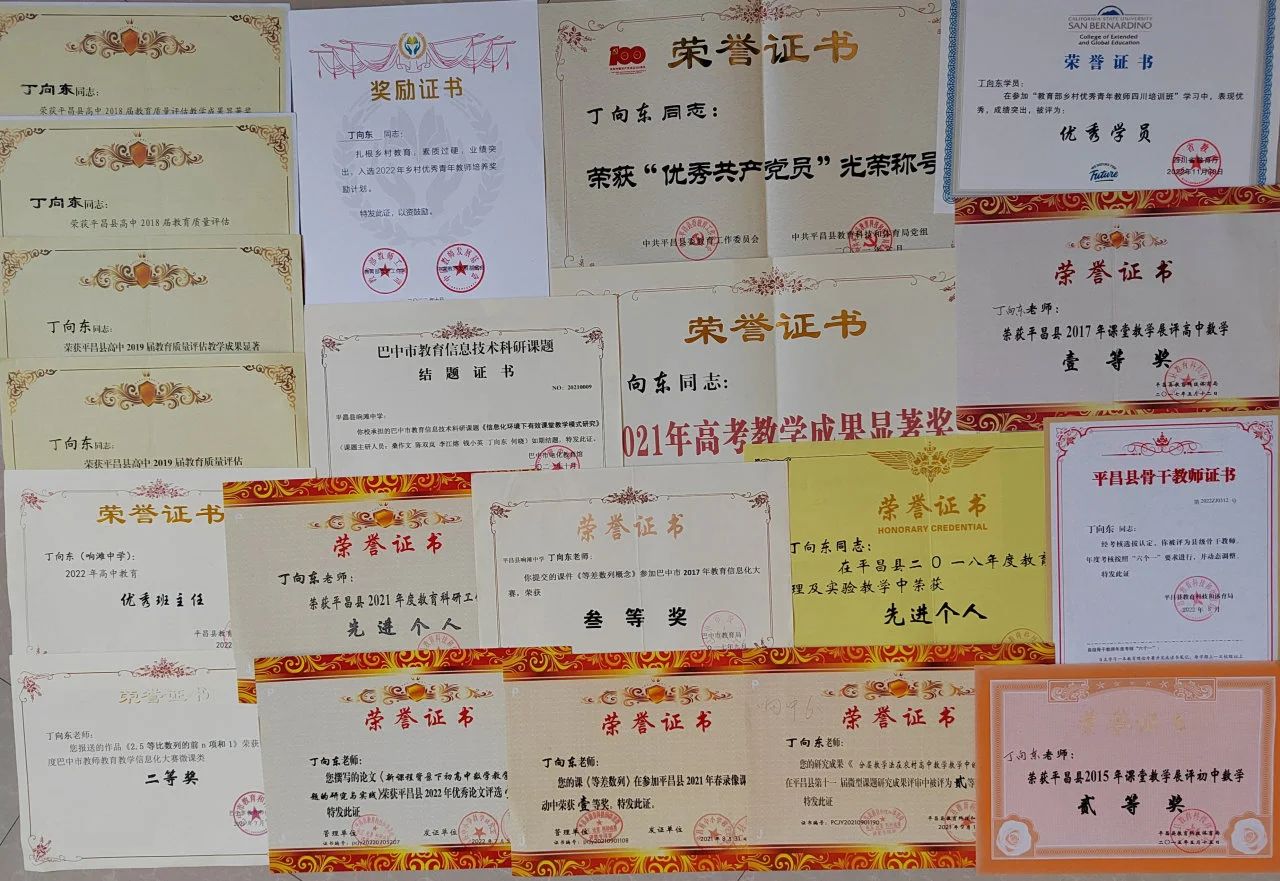 丁向东同志：
荣获平昌县高中2018届教育质量评估教学成果显著奖
丁向东同志：
荣获平昌县高中2018届教育质量评估
丁向东同志：
荣获平昌县高中2019届教育质量评估教学成果显著
丁向东同志：
荣获平昌县高中2019届教育质量评估
奖励证书
丁向东 同志：
扎根乡村教育，素质过硬，业绩突
出，入选2022年乡村优秀青年教师培养奖
励计划。
特发此证，以资鼓励。
100
荣誉证书
丁向东同志：
荣获“优秀共产党员”光荣称号
中共平昌县委教育工作委员会
中共平昌县教育科技和体育局党组
CALIFORNIA STATE UNIVERSITY
SAN BERNARDINO
College of Extended
and Global Education
荣誉证书
丁向东学员：
在参加“教育部乡村优秀青年教师四川培训班”学习中，表现优
秀，成绩突出，被评为：
优秀学员
Future
荣誉证书
丁向东老师：
荣获平昌县2017年课堂教学展评高中数学
壹等奖
平昌县教育科技体育局
二〇一七年五月十二日
巴中市教育信息技术科研课题
结题证书
NO：20210009
平昌县响滩中学：
你校承担的巴中市教育信息技术科研课题《信息化环境下有效课堂教学模式研究》
（课题主研人员：桑作文 陈双岚 李江熔 钱小英 丁向东 何晓）如期结题，特发此证。
荣誉证书
向东同志：
021年高考教学成果显著奖
荣誉证书
丁向东（响滩中学）：
2022年高中教育
优秀班主任
平昌县教育
2022
荣誉证书
丁向东老师：
荣获平昌县2021年度教育科研工
先进个人
荣誉证书
平昌县响滩中学 丁向东老师：
你提交的课件《等差数列概念》参加巴中市2017年教育信息化大
赛，荣获
叁等奖
巴中市教育局
荣誉证书
HONORARY CREDENTIAL
丁向东同志：
在平昌县二〇一八年度教育
理及实验教学中荣获
先进个人
平昌县骨干教师证书
第2022ZJ0312号
丁向东 同志：
经考核选拔认定，你被评为县级骨干教师，
年度考核按照“六个一”要求进行，并动态调整。
特发此证
平昌县教育科技和体育局
2022年8月
县级骨干教师年度考核“六个一”：
荣誉证书
丁向东老师：
您报送的作品《2.5等比数列的前n项和1》荣获
度巴中市教师教育教学信息化大赛微课类
二等奖
荣誉证书
丁向东老师：
您撰写的论文《新课程背景下初高中数学教学
题的研究与实践》荣获平昌县2022年优秀论文评选
特发此证
管理单位
发证单位
荣誉证书
丁向东老师：
您的课《等差数列》在参加平昌县2021年春录像课
动中荣获壹等奖，特发此证。
管理单位
发证单位
证书编号：pcj20210901108
荣誉证书
丁向东老师：
您的研究成果《分层教学法在农村高中数学教学中的
在平昌县第十一届微型课题研究成果评审中被评为贰等
特发此证
证书编号：PCJY20210901190
荣誉证书
丁向东老师：
荣获平昌县2015年课堂教学展评初中数学
贰等奖
平昌县教育科技体育局
二〇一五年五月十五日